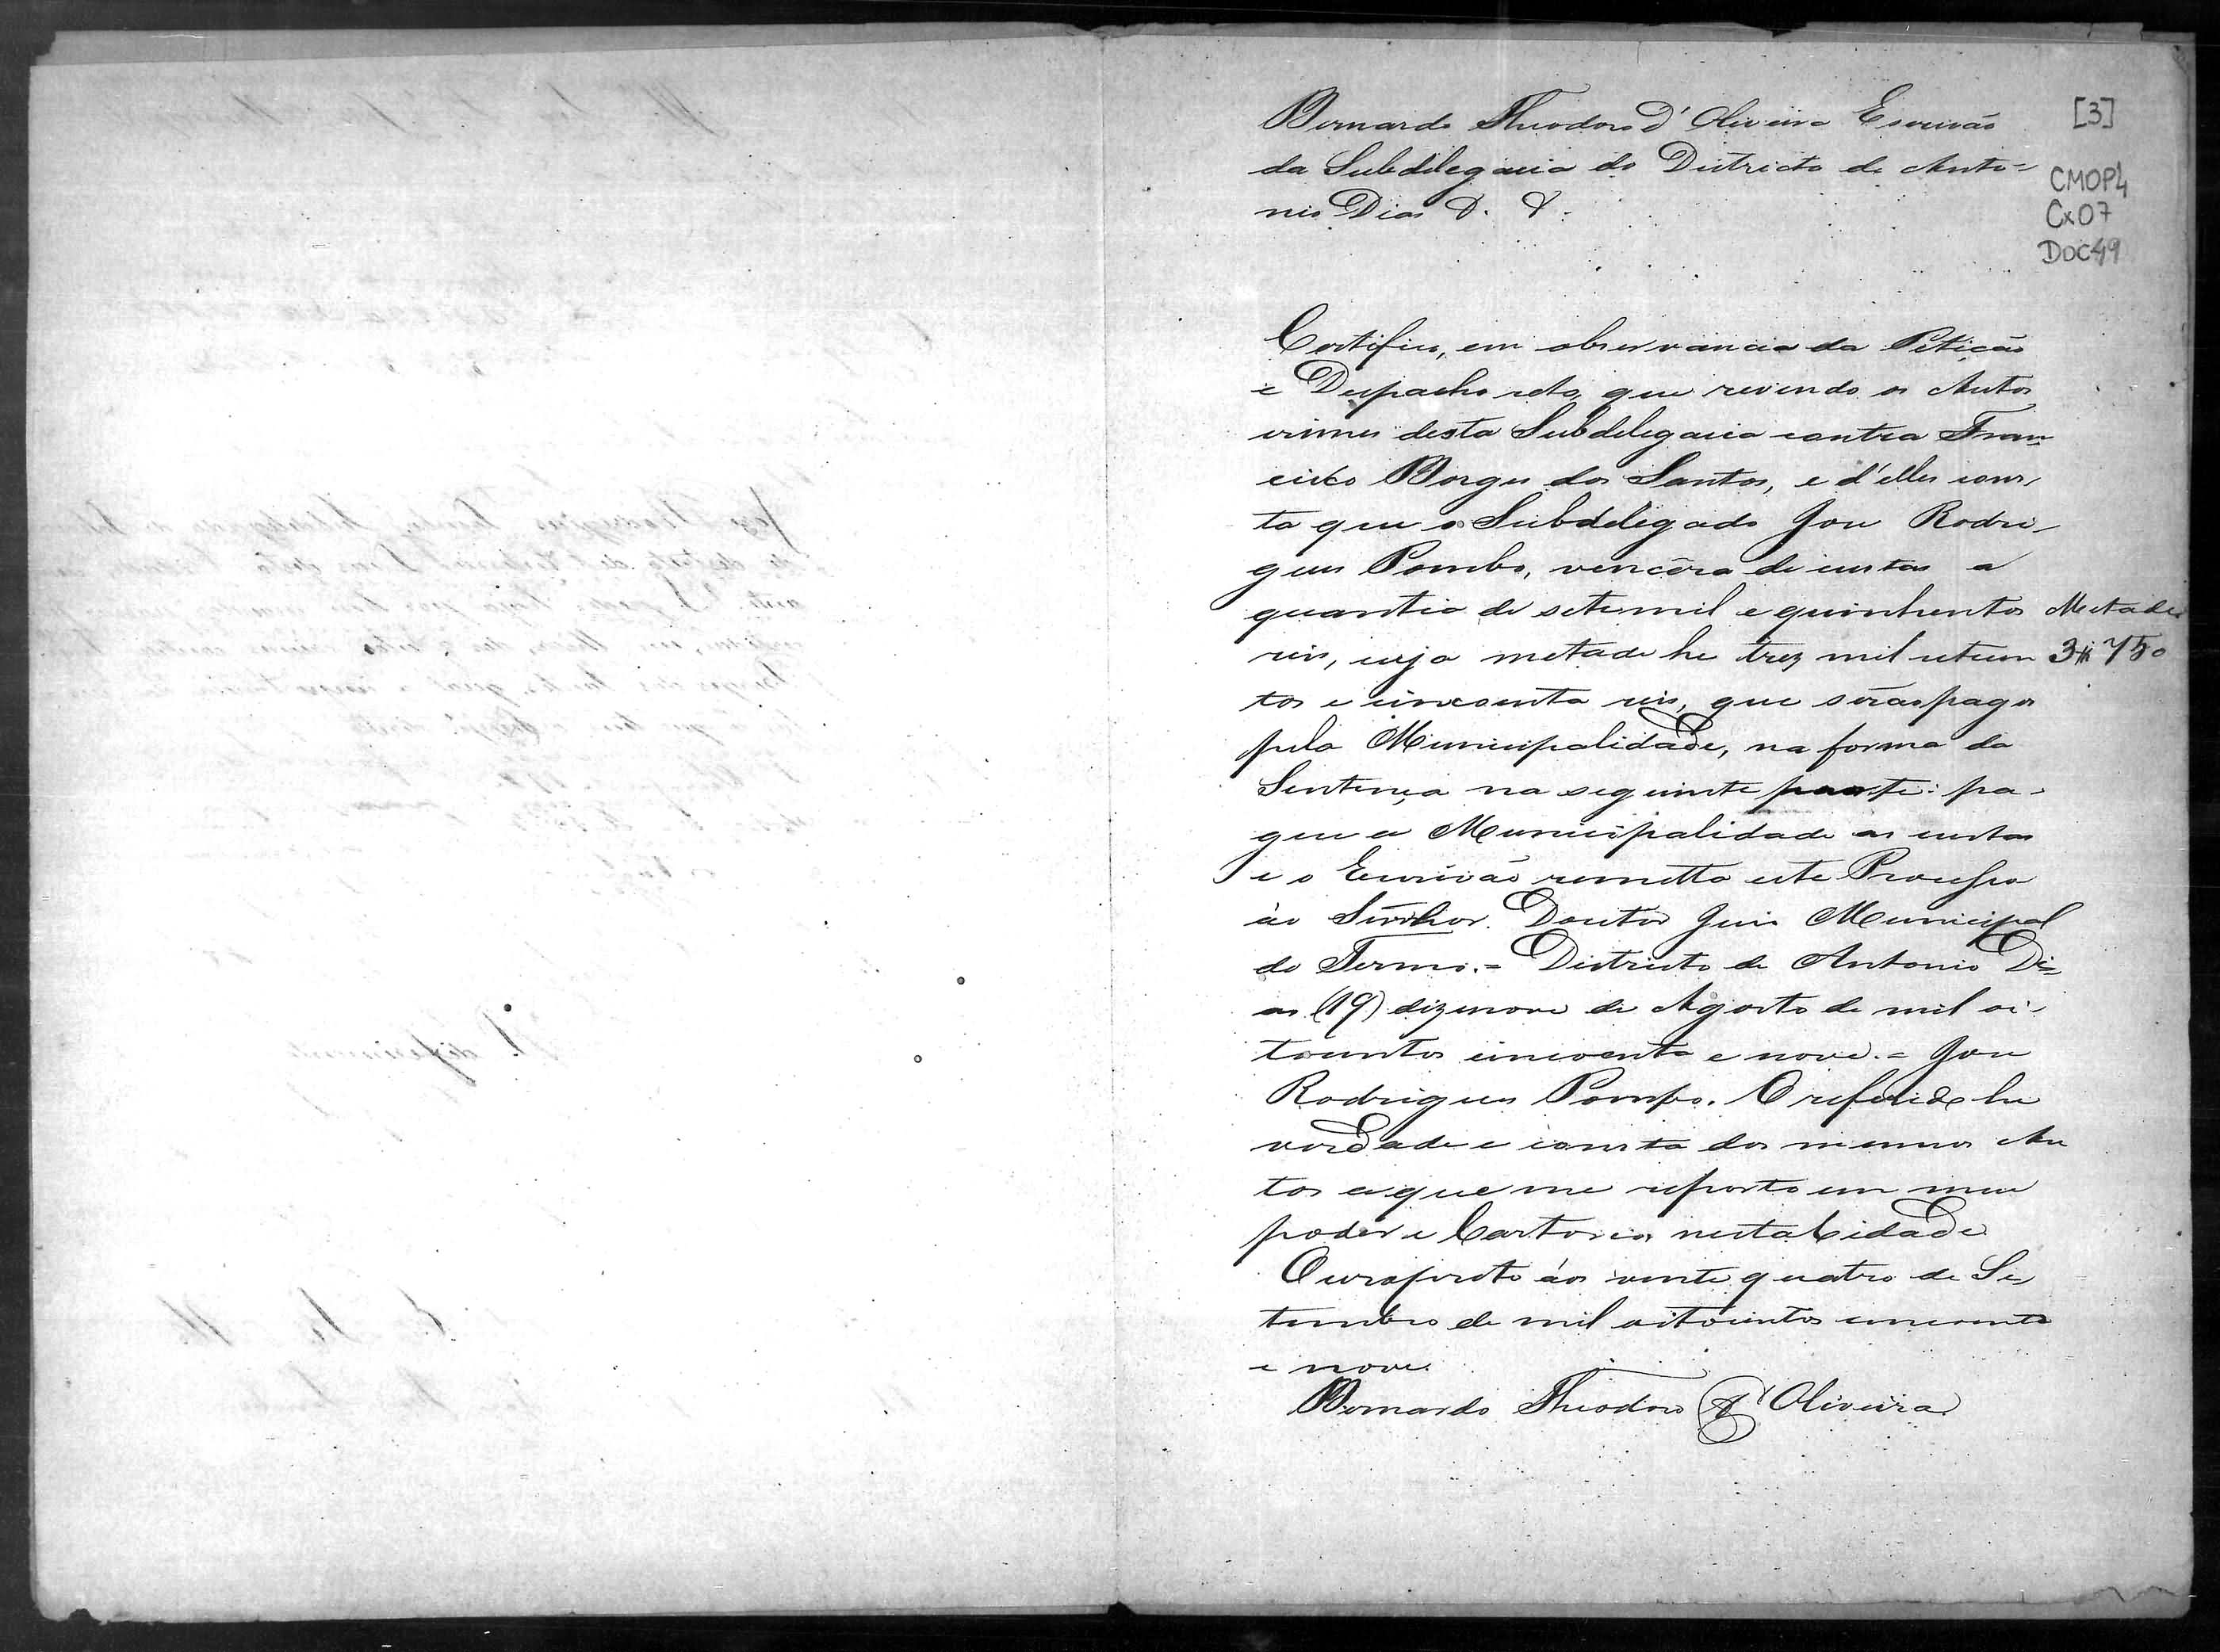 Bernardo Theodoro d'Oliveira Escrivão
da Subdelegacia do Districto de Anto=
nio Dias &. &.
[3]
CMOP4
Cx07
DOC49
Certifico, em observancia da Petição
e Despacho rcto, que revendo os Autos
crimes desta Subdelegacia contra Fran
cisco Borges dos Santos, e d'elles cons,
ta que o Subdelegado Jose Rodri-
gues Pombo, vencêra de custas a
quantia de sete mil e quinhentos
reis, cuja metade he trez mil setecen
Metade
3#750
tos e cincoenta reis, que serão pagos
pela Municipalidade, na forma da
Sentença na seguinte parte: pa-
gue a Municipalidade as custas
e o Escrivão remetta este Processo
ào Senhor Doutor Juis Municipal
do Termo.= Districto de Antonio Di=
as (19) dizenove de Agosto de mil oi-
tocentos cincoenta e nove.= Jose
Rodrigues Pombo. O referido he
verdade e consta dos mesmos Au
tos a que me reporto em meu
poder e Cartorio, nesta Cidade
Ouropreto áos vinte quatro de Se
tembro de mil oitocentos cincoenta
e nove.
Bernardo Theodoro d'Oliveira